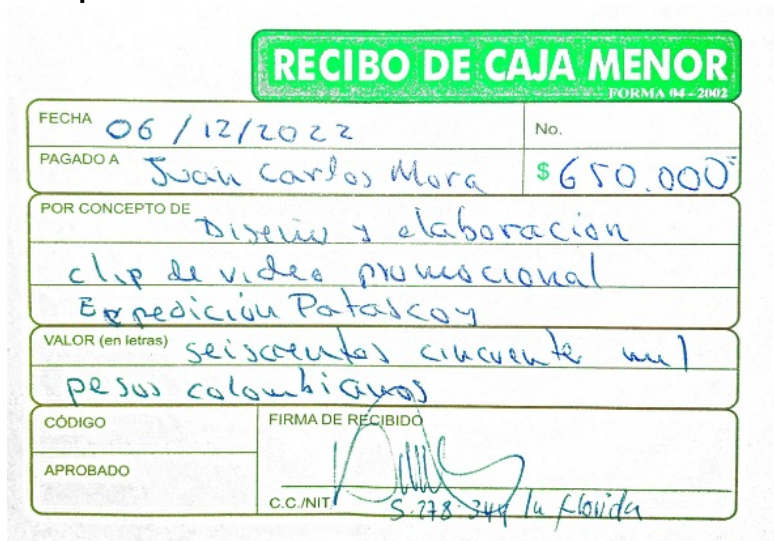 RECIBO DE CAJA MENOR
FORMA 04 - 2002
FECHA 06 / 12/2022
No.
PAGADO A Juan Carlos Mora
$ 650.000=
POR CONCEPTO DE Diseño y elaboración
clip de video promocional
Expedición Patascoy
VALOR (en letras) seiscientos cincuenta mil
pesos colombianos
CÓDIGO
FIRMA DE RECIBIDO
APROBADO
C.C./NIT 5.278.344 la florida